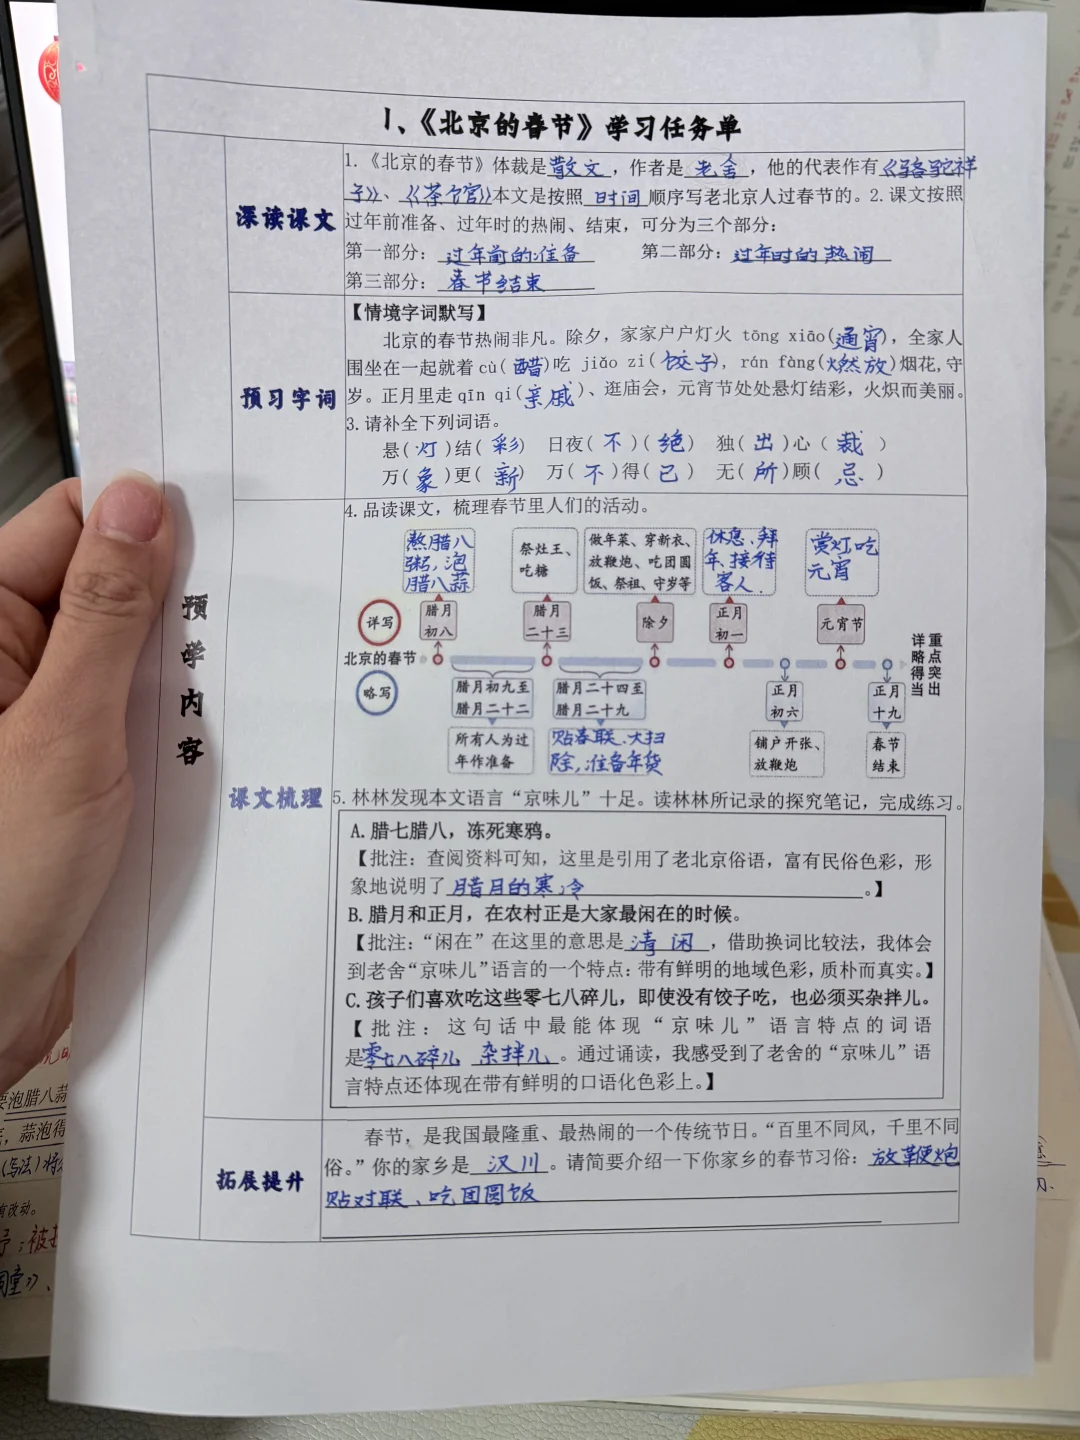 1、《北京的春节》学习任务单
预学内容
深读课文
1.《北京的春节》体裁是散文，作者是老舍，他的代表作有《骆驼祥
子》、《茶馆》本文是按照时间顺序写老北京人过春节的。2.课文按照
过年前准备、过年时的热闹、结束，可分为三个部分：
第一部分：过年前的准备 第二部分：过年时的热闹
第三部分：春节结束
预习字词
【情境字词默写】
北京的春节热闹非凡。除夕，家家户户灯火 tōng xiāo(通宵)，全家人
围坐在一起就着 cù(醋)吃 jiǎo zi(饺子)，rán fàng(燃放)烟花,守
岁。正月里走 qīn qi(亲戚)、逛庙会，元宵节处处悬灯结彩，火炽而美丽。
3.请补全下列词语。
悬(灯)结(彩) 日夜(不)(绝) 独(出)心(裁)
万(象)更(新) 万(不)得(已) 无(所)顾(忌)
课文梳理
4.品读课文，梳理春节里人们的活动。
熬腊八
粥，泡
腊八蒜
祭灶王、
吃糖
做年菜、穿新衣、
放鞭炮、吃团圆
饭、祭祖、守岁等
休息、拜
年、接待
客人.
赏灯吃
元宵
详写
腊月
初八
腊月
二十三
除夕
正月
初一
元宵节
北京的春节
详略得当
重点突出
略写
腊月初九至
腊月二十二
腊月二十四至
腊月二十九
正月
初六
正月
十九
所有人为过
年作准备
贴春联、大扫
除，准备年货
铺户开张、
放鞭炮
春节
结束
5.林林发现本文语言“京味儿”十足。读林林所记录的探究笔记，完成练习。
A.腊七腊八，冻死寒鸦。
【批注：查阅资料可知，这里是引用了老北京俗语，富有民俗色彩，形
象地说明了腊月的寒冷。】
B.腊月和正月，在农村正是大家最闲在的时候。
【批注：“闲在”在这里的意思是清闲，借助换词比较法，我体会
到老舍“京味儿”语言的一个特点：带有鲜明的地域色彩，质朴而真实。】
C.孩子们喜欢吃这些零七八碎儿，即使没有饺子吃，也必须买杂拌儿。
【批注：这句话中最能体现“京味儿”语言特点的词语
是零七八碎儿 杂拌儿。通过诵读，我感受到了老舍的“京味儿”语
言特点还体现在带有鲜明的口语化色彩上。】
拓展提升
春节，是我国最隆重、最热闹的一个传统节日。“百里不同风，千里不同
俗。”你的家乡是汉川。请简要介绍一下你家乡的春节习俗：放鞭炮
贴对联、吃团圆饭